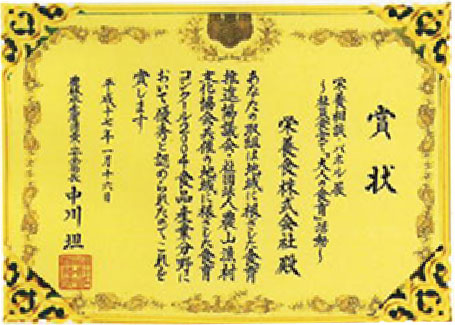 賞状
栄養相談、パネル展
～社員食堂で“大人の食育”活動～
栄養食株式会社 殿
あなたの取組は地域に根ざした食育
推進協議会・社団法人農山漁村
文化協会共催の地域に根ざした食育
コンクール2004食品産業分野に
おいて優秀と認められたのでこれを
賞します
平成十七年一月十六日
農林水産省消費・安全局長
中川坦